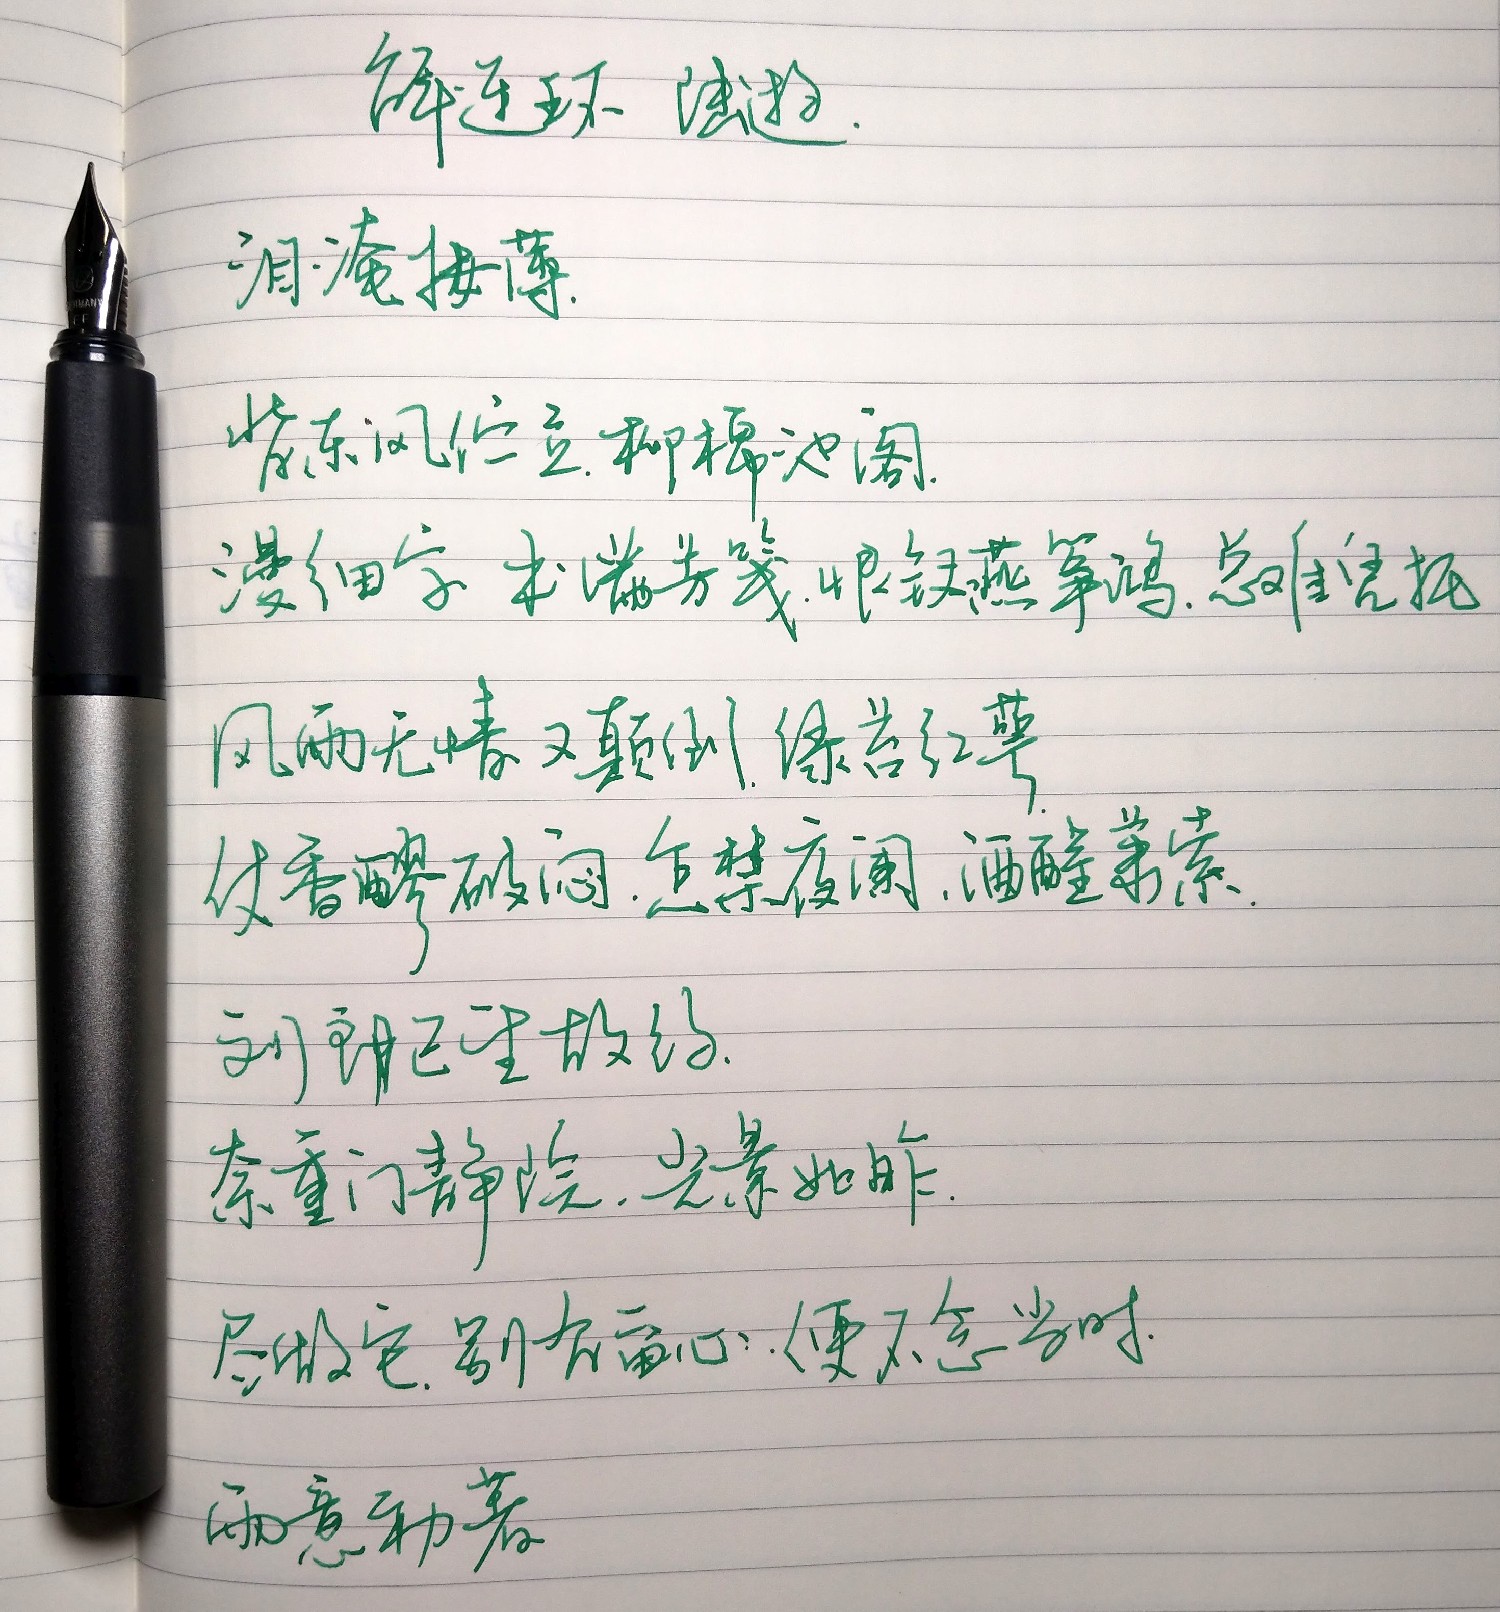 解连环 陆游.
泪淹妆薄.
背东风伫立.柳棉池阁.
漫细字书满芳笺.恨钗燕筝鸿.总难凭托
风雨无情又颠倒.绿苔红萼.
仗香醪破闷.怎禁夜阑.酒酲萧索.
刘郎已忘故约.
奈重门静院.光景如昨.
尽做它.别有留心.便不念当时.
雨意初著